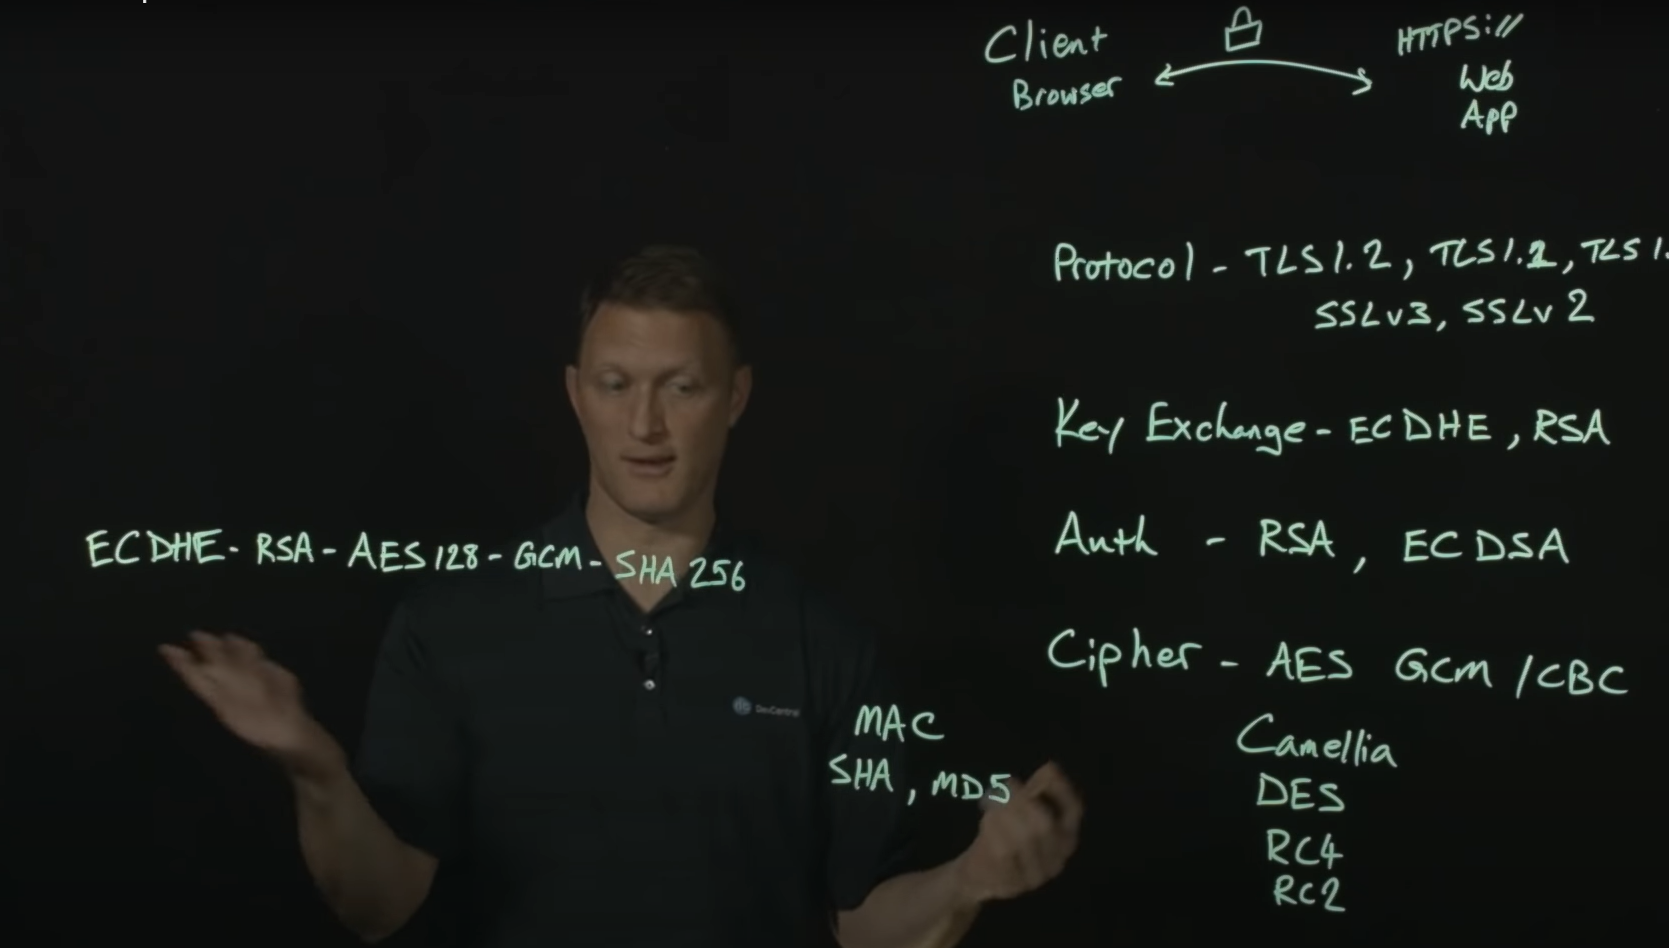 Client
Browser
HTTPS://
Web
App
Protocol - TLS1.2, TLS1.1, TLS1.
SSLv3, SSLv2
Key Exchange - ECDHE, RSA
Auth - RSA, ECDSA
Cipher - AES GCM /CBC
Camellia
DES
RC4
RC2
ECDHE-RSA-AES128-GCM-SHA256
MAC
SHA, MD5
DevCentral